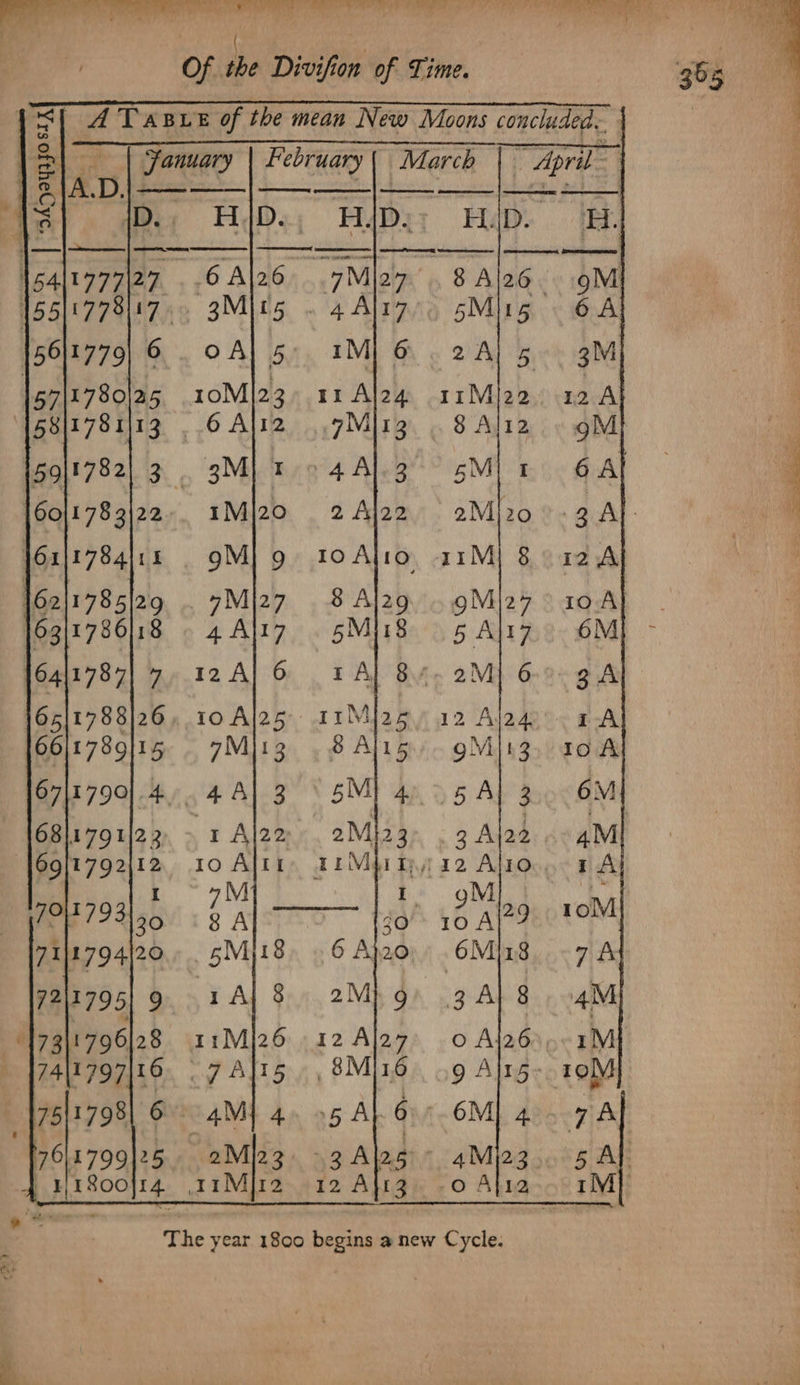 Of the Diviſion of Time. 365
A TABLE of the mean New Moons concluded.
Yrs of the Cyc. | A.D. | January | February | March | April
D. H. | D. H. | D. H. | D. H.
54 | 1777 | 27 6 A | 26 7 M | 27 8 A | 26 9 M
55 | 1778 | 17 3 M | 15 4 A | 17 5 M | 15 6 A
56 | 1779 | 6 0 A | 5 1 M | 6 2 A | 5 3 M
57 | 1780 | 25 10 M | 23 11 A | 24 11 M | 22 12 A
58 | 1781 | 13 6 A | 12 7 M | 13 8 A | 12 9 M
59 | 1782 | 3 3 M | 1 4 A | 3 5 M | 1 6 A
60 | 1783 | 22 1 M | 20 2 A | 22 2 M | 20 3 A
61 | 1784 | 11 9 M | 9 10 A | 10 11 M | 8 12 A
62 | 1785 | 29 7 M | 27 8 A | 29 9 M | 27 10 A
63 | 1786 | 18 4 A | 17 5 M | 18 5 A | 17 6 M
64 | 1787 | 7 12 A | 6 1 A | 8 2 M | 6 3 A
65 | 1788 | 26 10 A | 25 11 M | 25 12 A | 24 1 A
66 | 1789 | 15 7 M | 13 8 A | 15 9 M | 13 10 A
67 | 1790 | 4 4 A | 3 5 M | 4 5 A | 3 6 M
68 | 1791 | 23 1 A | 22 2 M | 23 3 A | 22 4 M
69 | 1792 | 12 10 A | 11 11 M | 11 12 A | 10 1 A
70 | 1793 | 1 7 M | —— | 1 9 M | 29 10 M
30 8 A | 30 10 A
71 | 1794 | 20 5 M | 18 6 A | 20 6 M | 18 7 A
72 | 1795 | 9 1 A | 8 2 M | 9 3 A | 8 4 M
73 | 1796 | 28 11 M | 26 12 A | 27 0 A | 26 1 M
74 | 1797 | 16 7 A | 15 8 M | 16 9 A | 15 10 M
75 | 1798 | 6 4 M | 4 5 A | 6 6 M | 4 7 A
76 | 1799 | 25 2 M | 23 3 A | 25 4 M | 23 5 A
1 | 1800 | 14 11 M | 12 12 A | 13 0 A | 12 1 M
The year 1800 begins a new Cycle.